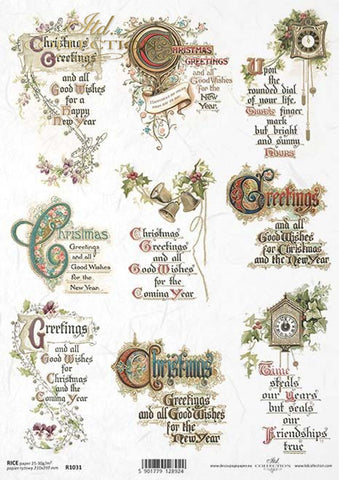 Itd
COLLECTION
Christmas
Greetings
and all
Good Wishes
for a
Happy
New Year
CHRISTMAS
GREETINGS
and all
Good Wishes
for the
New
Year.
Upon
the rounded
dial of
your life,
Time's finger
mark
but bright
and sunny
HOURS
Christmas
Greetings
and all
Good Wishes
for the
New Year.
Christmas
Greetings
and all
Good Wishes
for the
Coming Year
Greetings
and all
Good Wishes
for Christmas
and the New Year
Greetings
and all
Good Wishes
for
Christmas
and the
Coming Year
Christmas
Greetings
and all Good Wishes
for the New Year.
Time
steals
our Years
but seals
our
Friendships
true
RICE paper 25-30g/m²
papier ryżowy 210x297 mm
R1031
5 901779 128924
www.decoupagepaper.eu
Itd
COLLECTION
www.itdcollection.com